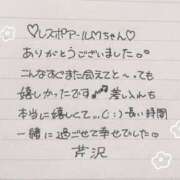 ♡レスポアールMちゃん♡
ありがとうございました。
こんなすぐまた会えてと〜っても
嬉しかったです 差し入れも
本当に嬉しくて..(:) 長い時間
一緒に過ごせて幸せでした。
芹沢